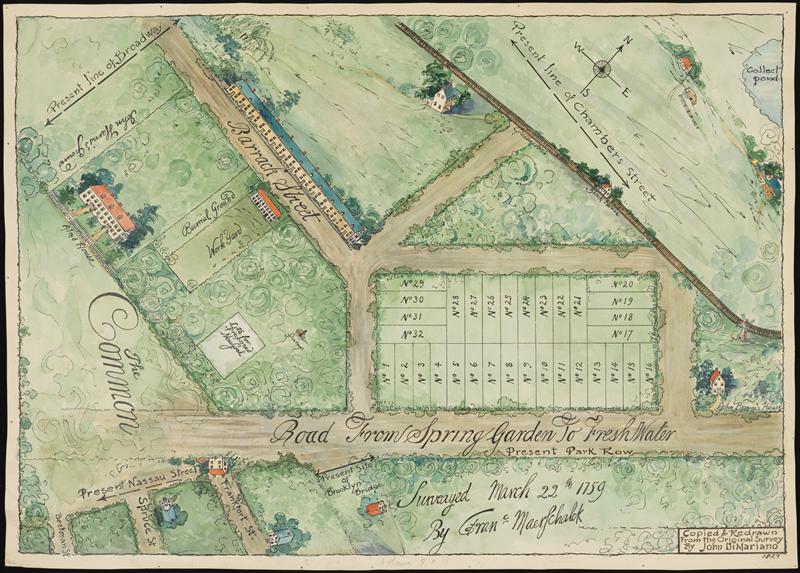 Present line of Broadway
Present line of Chambers Street
N
W
E
S
Collect
pond
Barrack Street
Alms House
Burial Ground
Work Yard
The
Common
No 29
No 30
No 31
No 32
No 28
No 27
No 26
No 25
No 24
No 23
No 22
No 21
No 20
No 19
No 18
No 17
No 1
No 2
No 3
No 4
No 5
No 6
No 7
No 8
No 9
No 10
No 11
No 12
No 13
No 14
No 15
No 16
House
Road From Spring Garden To Fresh Water
Present Park Row
Present Nassau Street
Present Site
of
Brooklyn
Bridge
Frankfort St.
Spruce St
Beekman St
Surveyed March 22th 1759
By Frans. Maerschalck
Copied & Redrawn
From the Original Survey
By John DiMariano